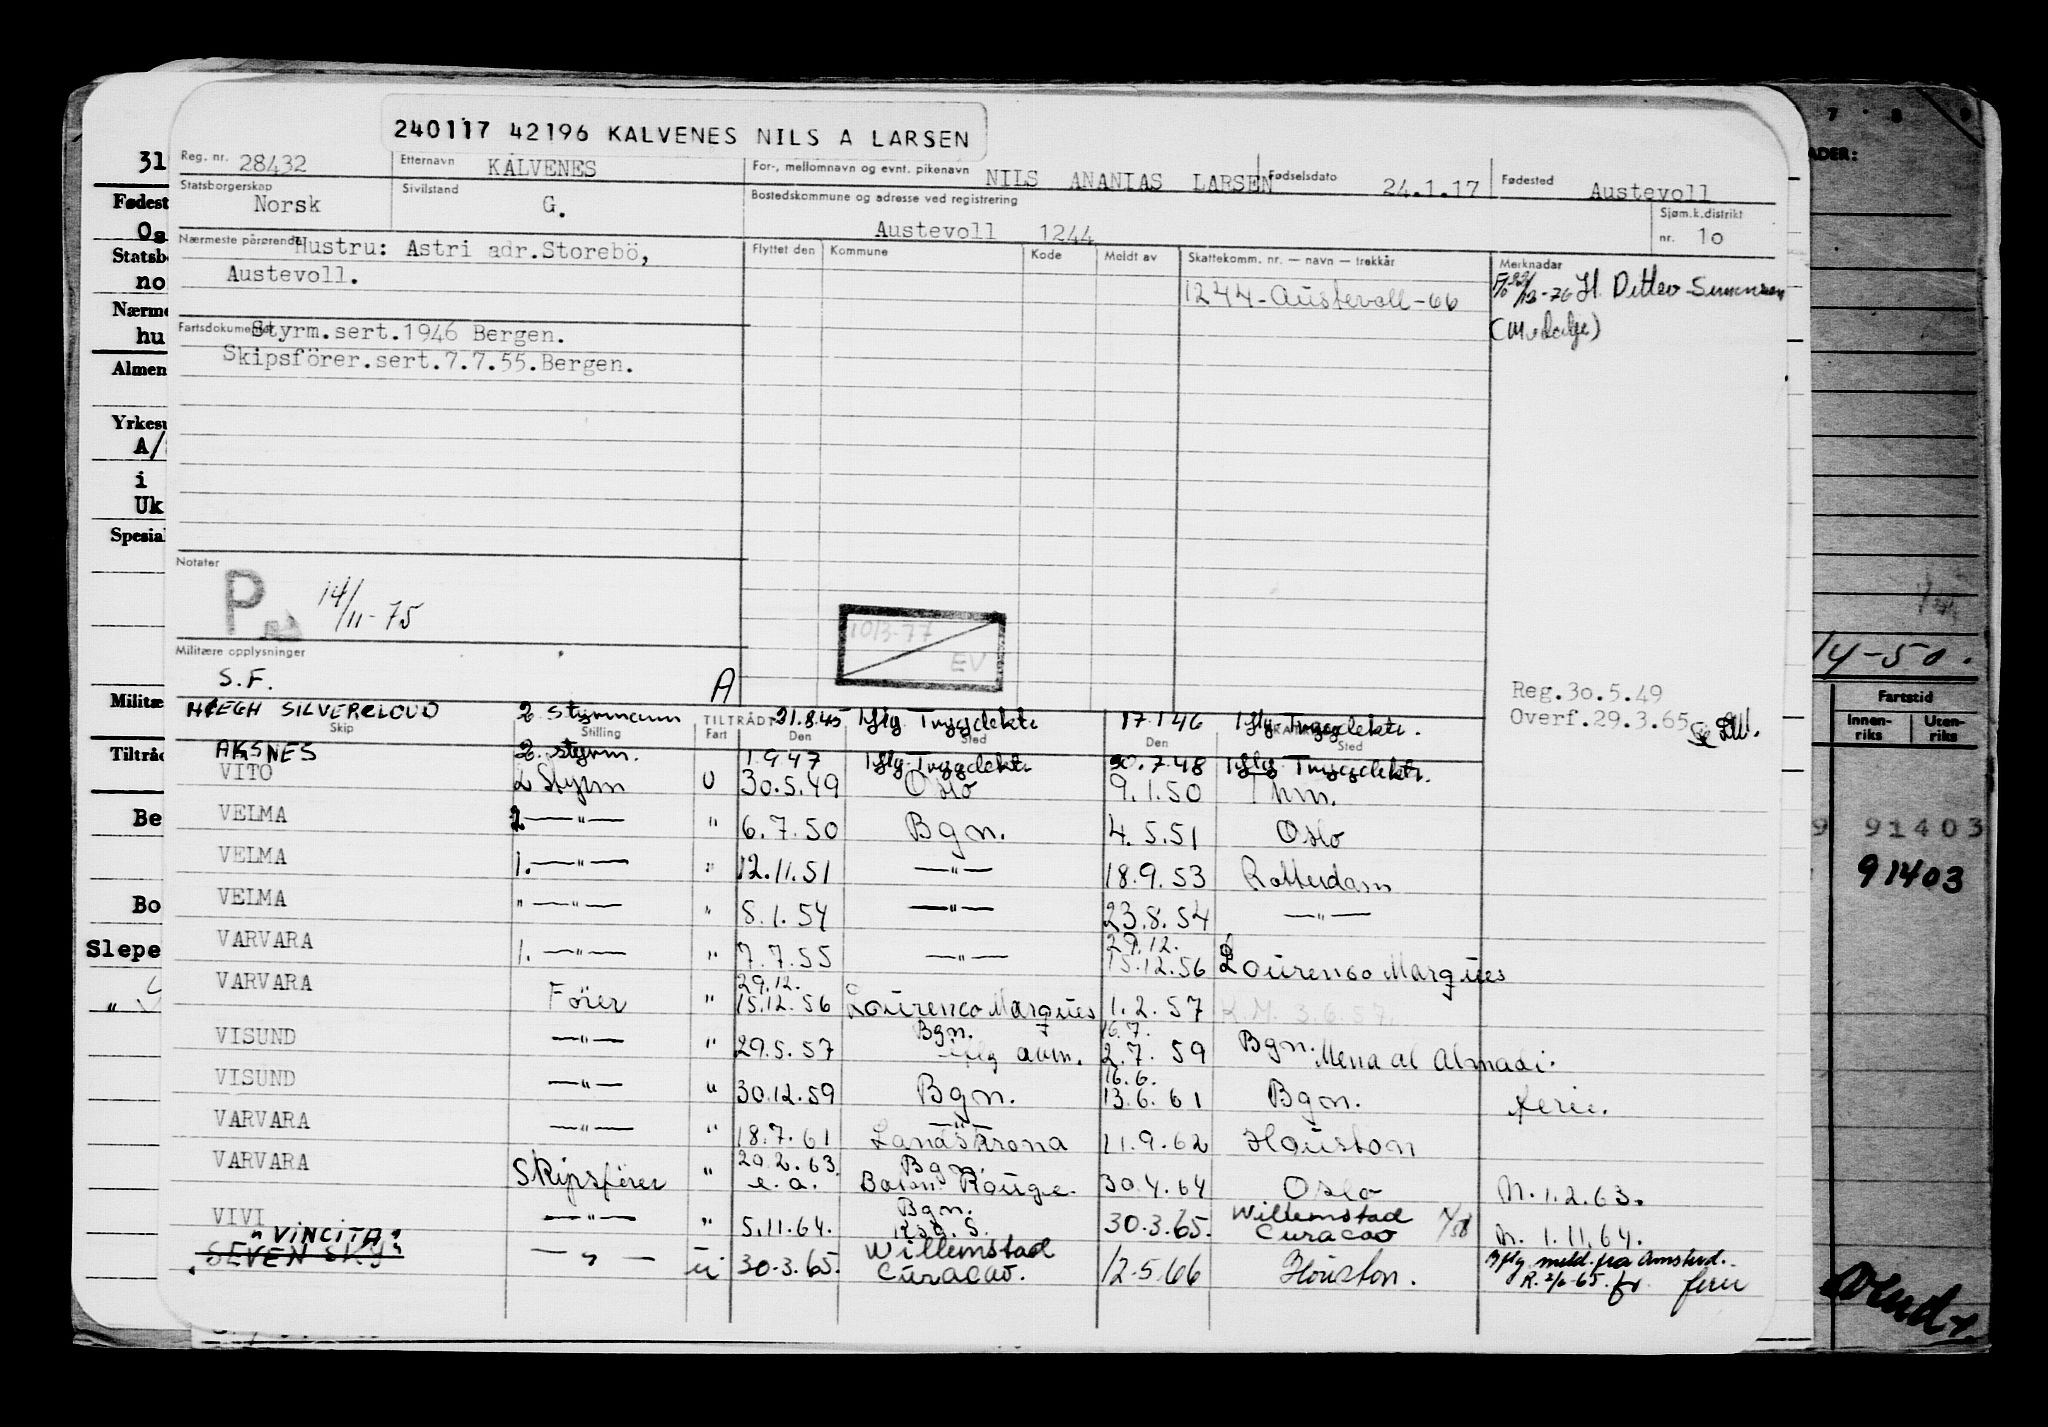 240117 42196 KALVENES NILS A LARSEN
Reg. nr. 28432 Etternavn KALVENES For-, mellomnavn og evnt. pikenavn NILS ANANIAS LARSEN Fødselsdato 24.1.17 Fødested Austevoll
Statsborgerskap Norsk Sivilstand G. Bostedskommune og adresse ved registrering Austevoll 1244 Sjøm.k.distrikt nr. 10
Nærmeste pårørende Hustru: Astri adr.Storebö, Flyttet den Kommune Kode Meldt av Skattekomm. nr. — navn — trekkår Merknadar
Austevoll. 1244-Austevoll-66
Fartsdokumenter Styrm.sert.1946 Bergen.
Skipsförer.sert.7.7.55.Bergen.
Notater
P 14/11-75
10/3-77
EV
Militære opplysninger
S.F. A
Reg.30.5.49
Overf.29.3.65
HØEGH SILVERCLOUD 2. Styrmann 21.8.45 Iflg. Trygdektr. 17.1.46 Iflg. Trygdektr.
Skip Stilling TILTRÅDT Fart Den Sted Den Sted
AKSNES 2. styrm. 1947 Iflg. Trygdektr. 30.7.48 Iflg. Trygdektr.
VITO 2 Styrm U 30.5.49 Oslo 9.1.50 Thm.
VELMA 2. —"— " 6.7.50 Bgn. 4.5.51 Oslo
VELMA 1. —"— " 12.11.51 —"— 18.9.53 Rotterdam
VELMA " —"— " 8.1.54 —"— 23.8.54 —"—
VARVARA 1. —"— " 7.7.55 —"— 29.12. 15.12.56 Lourenco Marques
VARVARA Förer " 29.12. 15.12.56 Lourenco Marques 1.2.57 K.M. 3.6.57.
VISUND —"— " 29.5.57 Bgn. 16.7. 2.7.59 Bgn. Mena al Ahmadi.
VISUND —"— " 30.12.59 Bgn. 16.6. 13.6.61 Bgn. ferie.
VARVARA —"— " 18.7.61 Landskrona 11.9.62 Houston
VARVARA Skipsförer " 20.2.63. e.a. Bgn. Baton Rouge. 30.4.64 Oslo M. 1.2.63.
VIVI —"— " 5.11.64. Bgn. Ksd. S. 30.3.65. Willemstad Curacao M. 1.11.64.
"VINCITA"
SEVEN SKY —"— U 30.3.65. Willemstad Curacao. 12.5.66 Houston. Iflg meld. fra Amsterd. ferie
31
Fødest
Statsb
no
Nærme
hu
Almen
Yrkesu
A/
i
Uk
Spesial
Militæ
Tiltråd
Be
Bo
Slepe
"
7 8 9
ADER:
14-50.
Fartstid
Innenriks Utenriks
9 91403
91403